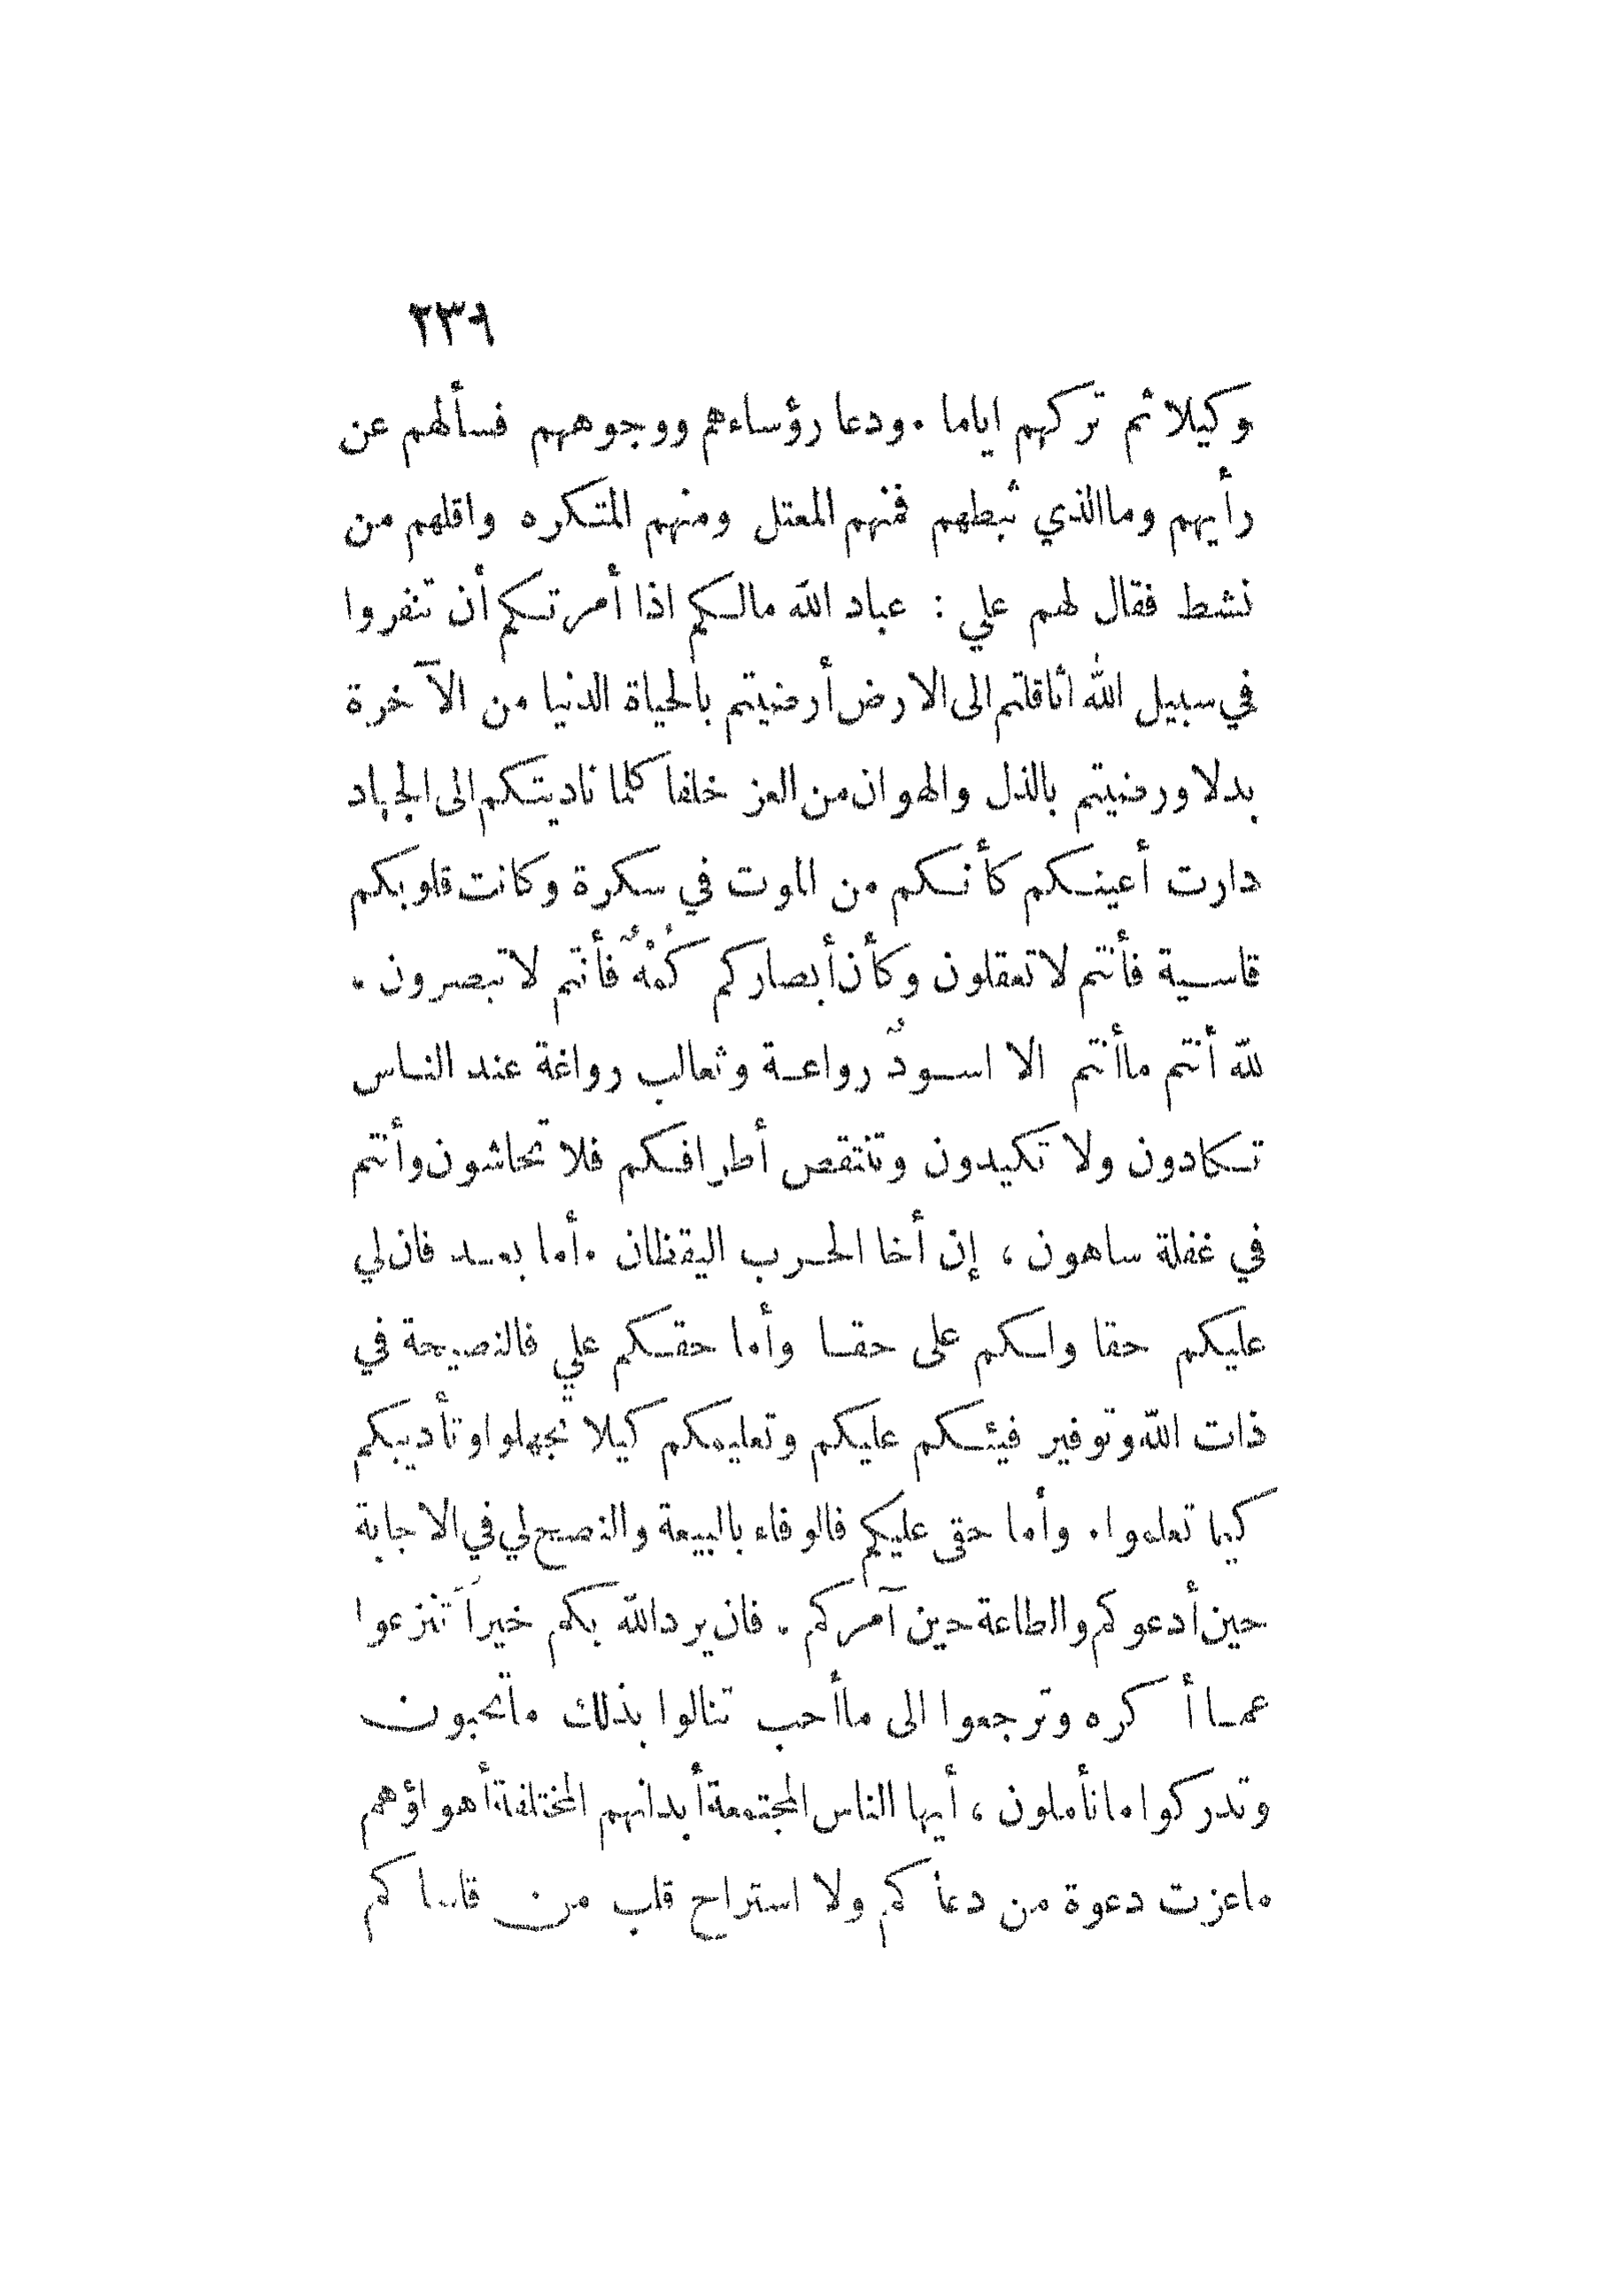 ٢٣٩
وكيلا ثم تركهم اياما . ودعا رؤساءهم ووجوههم فسألهم عن
رأيهم وما الذي ثبطهم فمنهم المعتل ومنهم المتكره واقلهم من
نشط فقال لهم علي : عباد الله مالكم اذا أمرتكم أن تنفروا
في سبيل الله اثاقلتم الى الارض أرضيتم بالحياة الدنيا من الآخرة
بدلا ورضيتم بالذل والهوان من العز خلفا كلما ناديتكم الى الجهاد
دارت أعينكم كأنكم من الموت في سكرة وكانت قلوبكم
قاسية فأنتم لا تعقلون وكأن أبصاركم كُمْهٌ فأنتم لا تبصرون .
لله أنتم ما أنتم الا اسودٌ رواعة وثعالب رواغة عند الناس
تكادون ولا تكيدون وتنتقص أطرافكم فلا تحاشون وأنتم
في غفلة ساهون ، إن أخا الحرب اليقظان . أما بعد فان لي
عليكم حقا ولكم على حقا وأما حقكم علي فالنصيحة في
ذات الله وتوفير فيئكم عليكم وتعليمكم كيلا تجهلوا وتأديبكم
كيما تعلموا . وأما حقى عليكم فالوفاء بالبيعة والنصح لي في الاجابة
حين أدعوكم والطاعة حين آمركم . فان يرد الله بكم خيراً تنزعوا
عما أكره وترجعوا الى ما أحب تنالوا بذلك ما تحبون
وتدركوا ما تأملون ، أيها الناس المجتمعة أبدانهم المختلفة أهواؤهم
ما عزت دعوة من دعاكم ولا استراح قلب من قاساكم